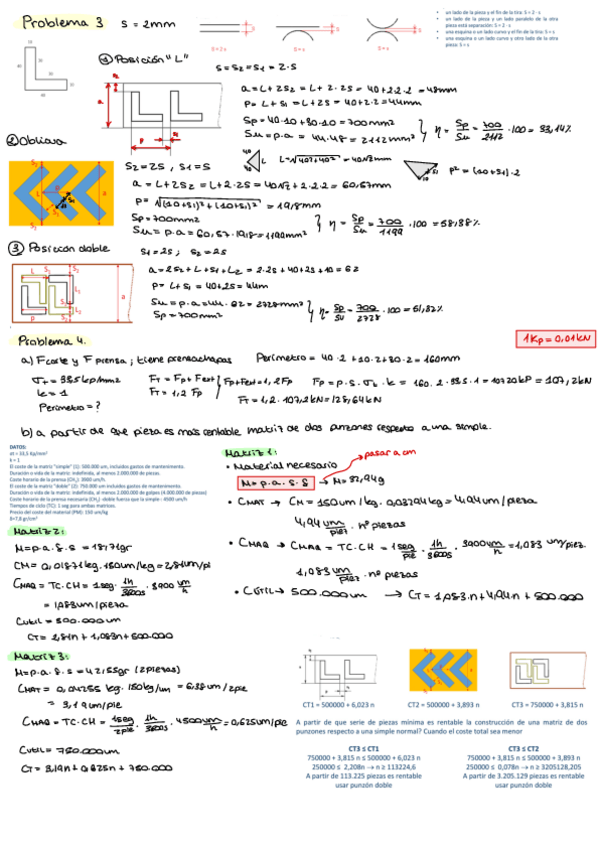 Problema 3
S = 2mm
S = 2·s
S = s
S = s
• un lado de la pieza y el fin de la tira: S = 2 · s
• un lado de la pieza y un lado paralelo de la otra pieza está separación: S = 2 · s
• una esquina o un lado curvo y el fin de la tira: S = s
• una esquina o un lado curvo y otro lado de la otra pieza: S = s
① Posición "L"
S = S2 = S1 = 2·S
a = L + 2S2 = L + 2·2S = 40+2·2·2 = 48mm
P = L + S1 = L+2S = 40+2·2 = 44mm
Sp = 40·10+30·10 = 700mm²
Su = p·a = 44·48 = 2112mm²
η = Sp/Su = 700/2112 · 100 = 33,14%
② Oblicua
S2 = 2S , S1 = S
L = √40²+40² = 40√2mm
P² = (10+S1)·2
a = L+2S2 = L+2·2S = 40√2+2·2·2 = 60,57mm
P = √(10+S1)²+(10+S1)² = 19,8mm
Sp = 700mm²
Su = p·a = 60,57·19,8 = 1199mm²
η = Sp/Su = 700/1199 · 100 = 58,38%
③ Posición doble
S1 = 2S ; S2 = 2S
a = 2S2 + L + S1 + L2 = 2·2S + 40+2S+10 = 62
P = L+S1 = 40+2S = 44m
Su = p·a = 44·62 = 2728mm²
Sp = 700mm²
η = Sp/Su = 700/2728 · 100 = 51,32%
Problema 4.
1Kp = 0,01kN
a) Fcorte y F prensa ; tiene prensachapas
Perímetro = 40·2+10·2+30·2 = 160mm
σT = 33,5kp/mm2
K = 1
Perímetro = ?
FT = Fp + Fext
FT = 1,2 Fp
Fp+Fext = 1,2Fp
Fp = p·s·σt·k = 160·2·33,5·1 = 10720kP = 107,2kN
FT = 1,2·107,2kN = 128,64kN
b) a partir de que pieza es más rentable matriz de dos punzones respecto a una simple.
DATOS:
σt = 33,5 Kp/mm²
k = 1
El coste de la matriz "simple" (1): 500.000 um, incluidos gastos de mantenimiento.
Duración o vida de la matriz: indefinida, al menos 2.000.000 de piezas.
Coste horario de la prensa (CH1): 3900 um/h
El coste de la matriz "doble" (2): 750.000 um incluidos gastos de mantenimiento.
Duración o vida de la matriz: indefinida, al menos 2.000.000 de golpes (4.000.000 de piezas)
Coste horario de la prensa necesaria (CH2) -doble fuerza que la simple-: 4500 um/h
Tiempos de ciclo (TC): 1 seg para ambas matrices.
Precio del coste del material (PM): 150 um/kg
δ=7,8 gr/cm³
Matriz 1:
• Material necesario
pasar a cm
M = p·a·s·δ → M = 32,94g
• CMAT → CM = 150um/kg · 0,03294kg = 4,94um/pieza
4,94 um/piez · nº piezas
• CMAQ → CMAQ = TC·CH = 1seg/pie · 1h/3600s · 3900um/h = 1,083 um/piez.
1,083 um/piez · nº piezas
• CÚTIL → 500.000um → CT = 1,083·n+4,94·n + 500.000
Matriz 2:
M = p·a·s·δ = 18,71gr
CM = 0,01871kg·150um/kg = 2,81um/pi
CMAQ = TC·CH = 1seg· 1h/3600s · 3900 um/h
= 1,083um/pieza
Cútil = 500.000um
CT = 2,81n + 1,083n + 500.000
Matriz 3:
M = p·a·s·δ = 42,55gr (2piezas)
CMAT = 0,04255 kg·150kg/um = 6,38um/2pie
= 3,19um/pie
CMAQ = TC·CH = 1seg/2pie · 1h/3600s · 4500um/h = 0,625um/pie
Cútil = 750.000um
CT = 3,19n + 0,625n + 750.000
CT1 = 500000 + 6,023 n
CT2 = 500000 + 3,893 n
CT3 = 750000 + 3,815 n
A partir de que serie de piezas mínima es rentable la construcción de una matriz de dos punzones respecto a una simple normal? Cuando el coste total sea menor
CT3 ≤ CT1
750000 + 3,815 n ≤ 500000 + 6,023 n
250000 ≤ 2,208n → n ≥ 113224,6
A partir de 113.225 piezas es rentable
usar punzón doble
CT3 ≤ CT2
750000 + 3,815 n ≤ 500000 + 3,893 n
250000 ≤ 0,078n → n ≥ 3205128,205
A partir de 3.205.129 piezas es rentable
usar punzón doble